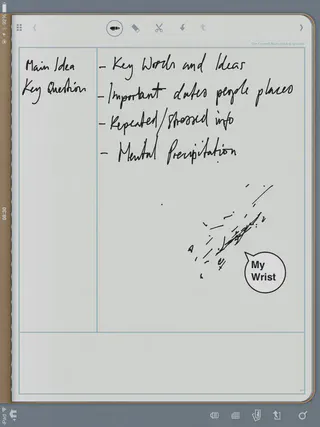 Main Idea
Key Question
- Key Words and Ideas
- Important dates people places
- Repeated/Stressed info
- Mental Precipitation
My
Wrist